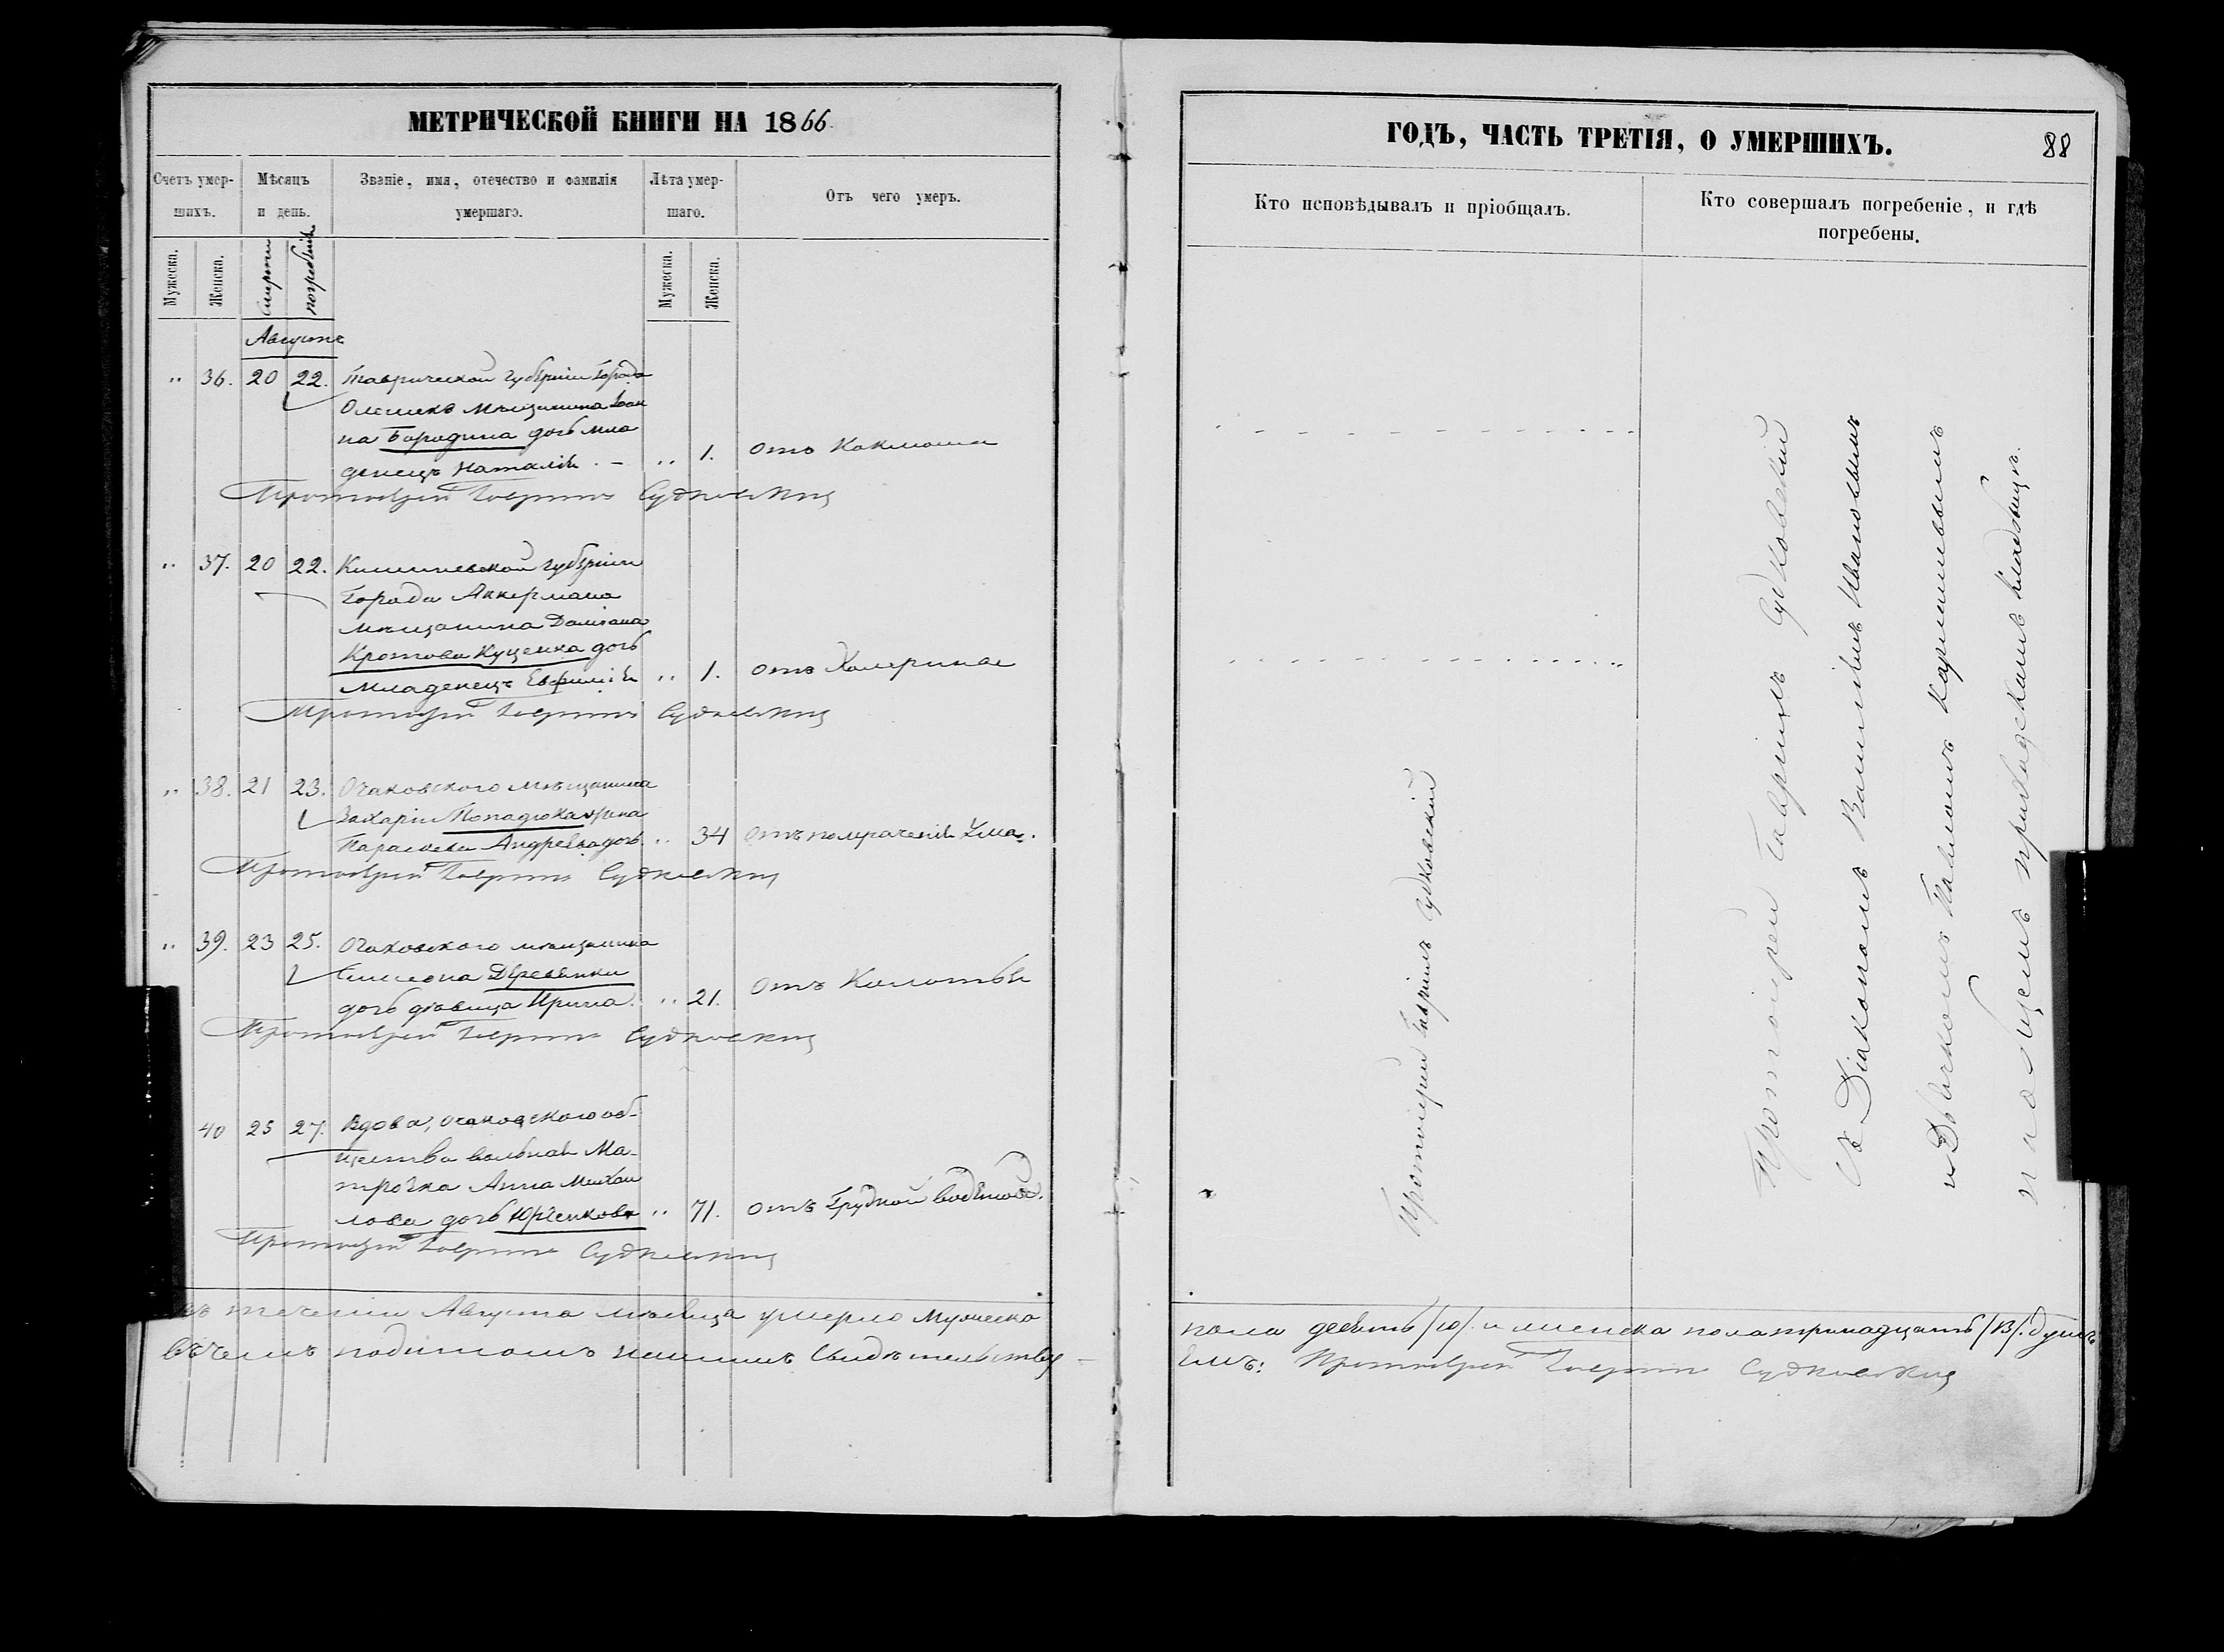 МЕТРИЧЕСКОЙ КНИГИ НА 1866
Счетъ умер-
шихъ.
Мѣсяцъ
и день.
Званіе, имя, отечество и фамилія
умершаго.
Лѣта умер-
шаго.
Отъ чего умеръ.
Мужеска.
Женска.
Смерти
погребенія.
Мужеска.
Женска.
Августъ
" 36. 20 22. Таврической Губерніи города
Олешекъ мѣщанина Іоан
на Бородина дочь мла
денецъ Наталія. - " 1. отъ Коклюша
Протоіерей Гавріилъ Судковскій
" 37. 20 22. Кишиневской губерніи
города Аккермана
мѣщанина Даміана
Кротова Куценка дочь
младенецъ Евфимія " 1. отъ Холерины
Протоіерей Гавріилъ Судковскій
" 38. 21 23. Очаковского мѣщанина
Захаріи Попадюка жена
Параскева Андреева дочь. " 34 отъ помраченія Ума.
Протоіерей Гавріилъ Судковскій
" 39. 23 25. Очаковского мѣщанина
Симеона Деревянки
дочь дѣвица Ирина. " 21. отъ
Протоіерей Гавріилъ Судковскій
40 25 27. Вдова, очаковского об-
щества вольная Ма-
трозка Анна Михаи
лова дочь Юрченкова " 71. отъ Грудной водяной.
Протоіерей Гавріилъ Судковскій
въ теченіи Августа мѣсяца умерло мужеска
въ чемъ подписомъ нашимъ свидѣтельствуемъ
ГОДЪ, ЧАСТЬ ТРЕТІЯ, О УМЕРШИХЪ.
88
Кто исповѣдывалъ и пріобщалъ.
Кто совершалъ погребеніе, и гдѣ
погребены.
Протоіерей Гавріилъ Судковскій
Протоіерей Гавріилъ Судковскій
съ Діакономъ Василіемъ Ивановымъ
и Дьячкомъ Павломъ
на общемъ приходскомъ кладбищѣ.
пола десять /10/. и женска пола тринадцать /13/. душъ
Протоіерей Гавріилъ Судковскій